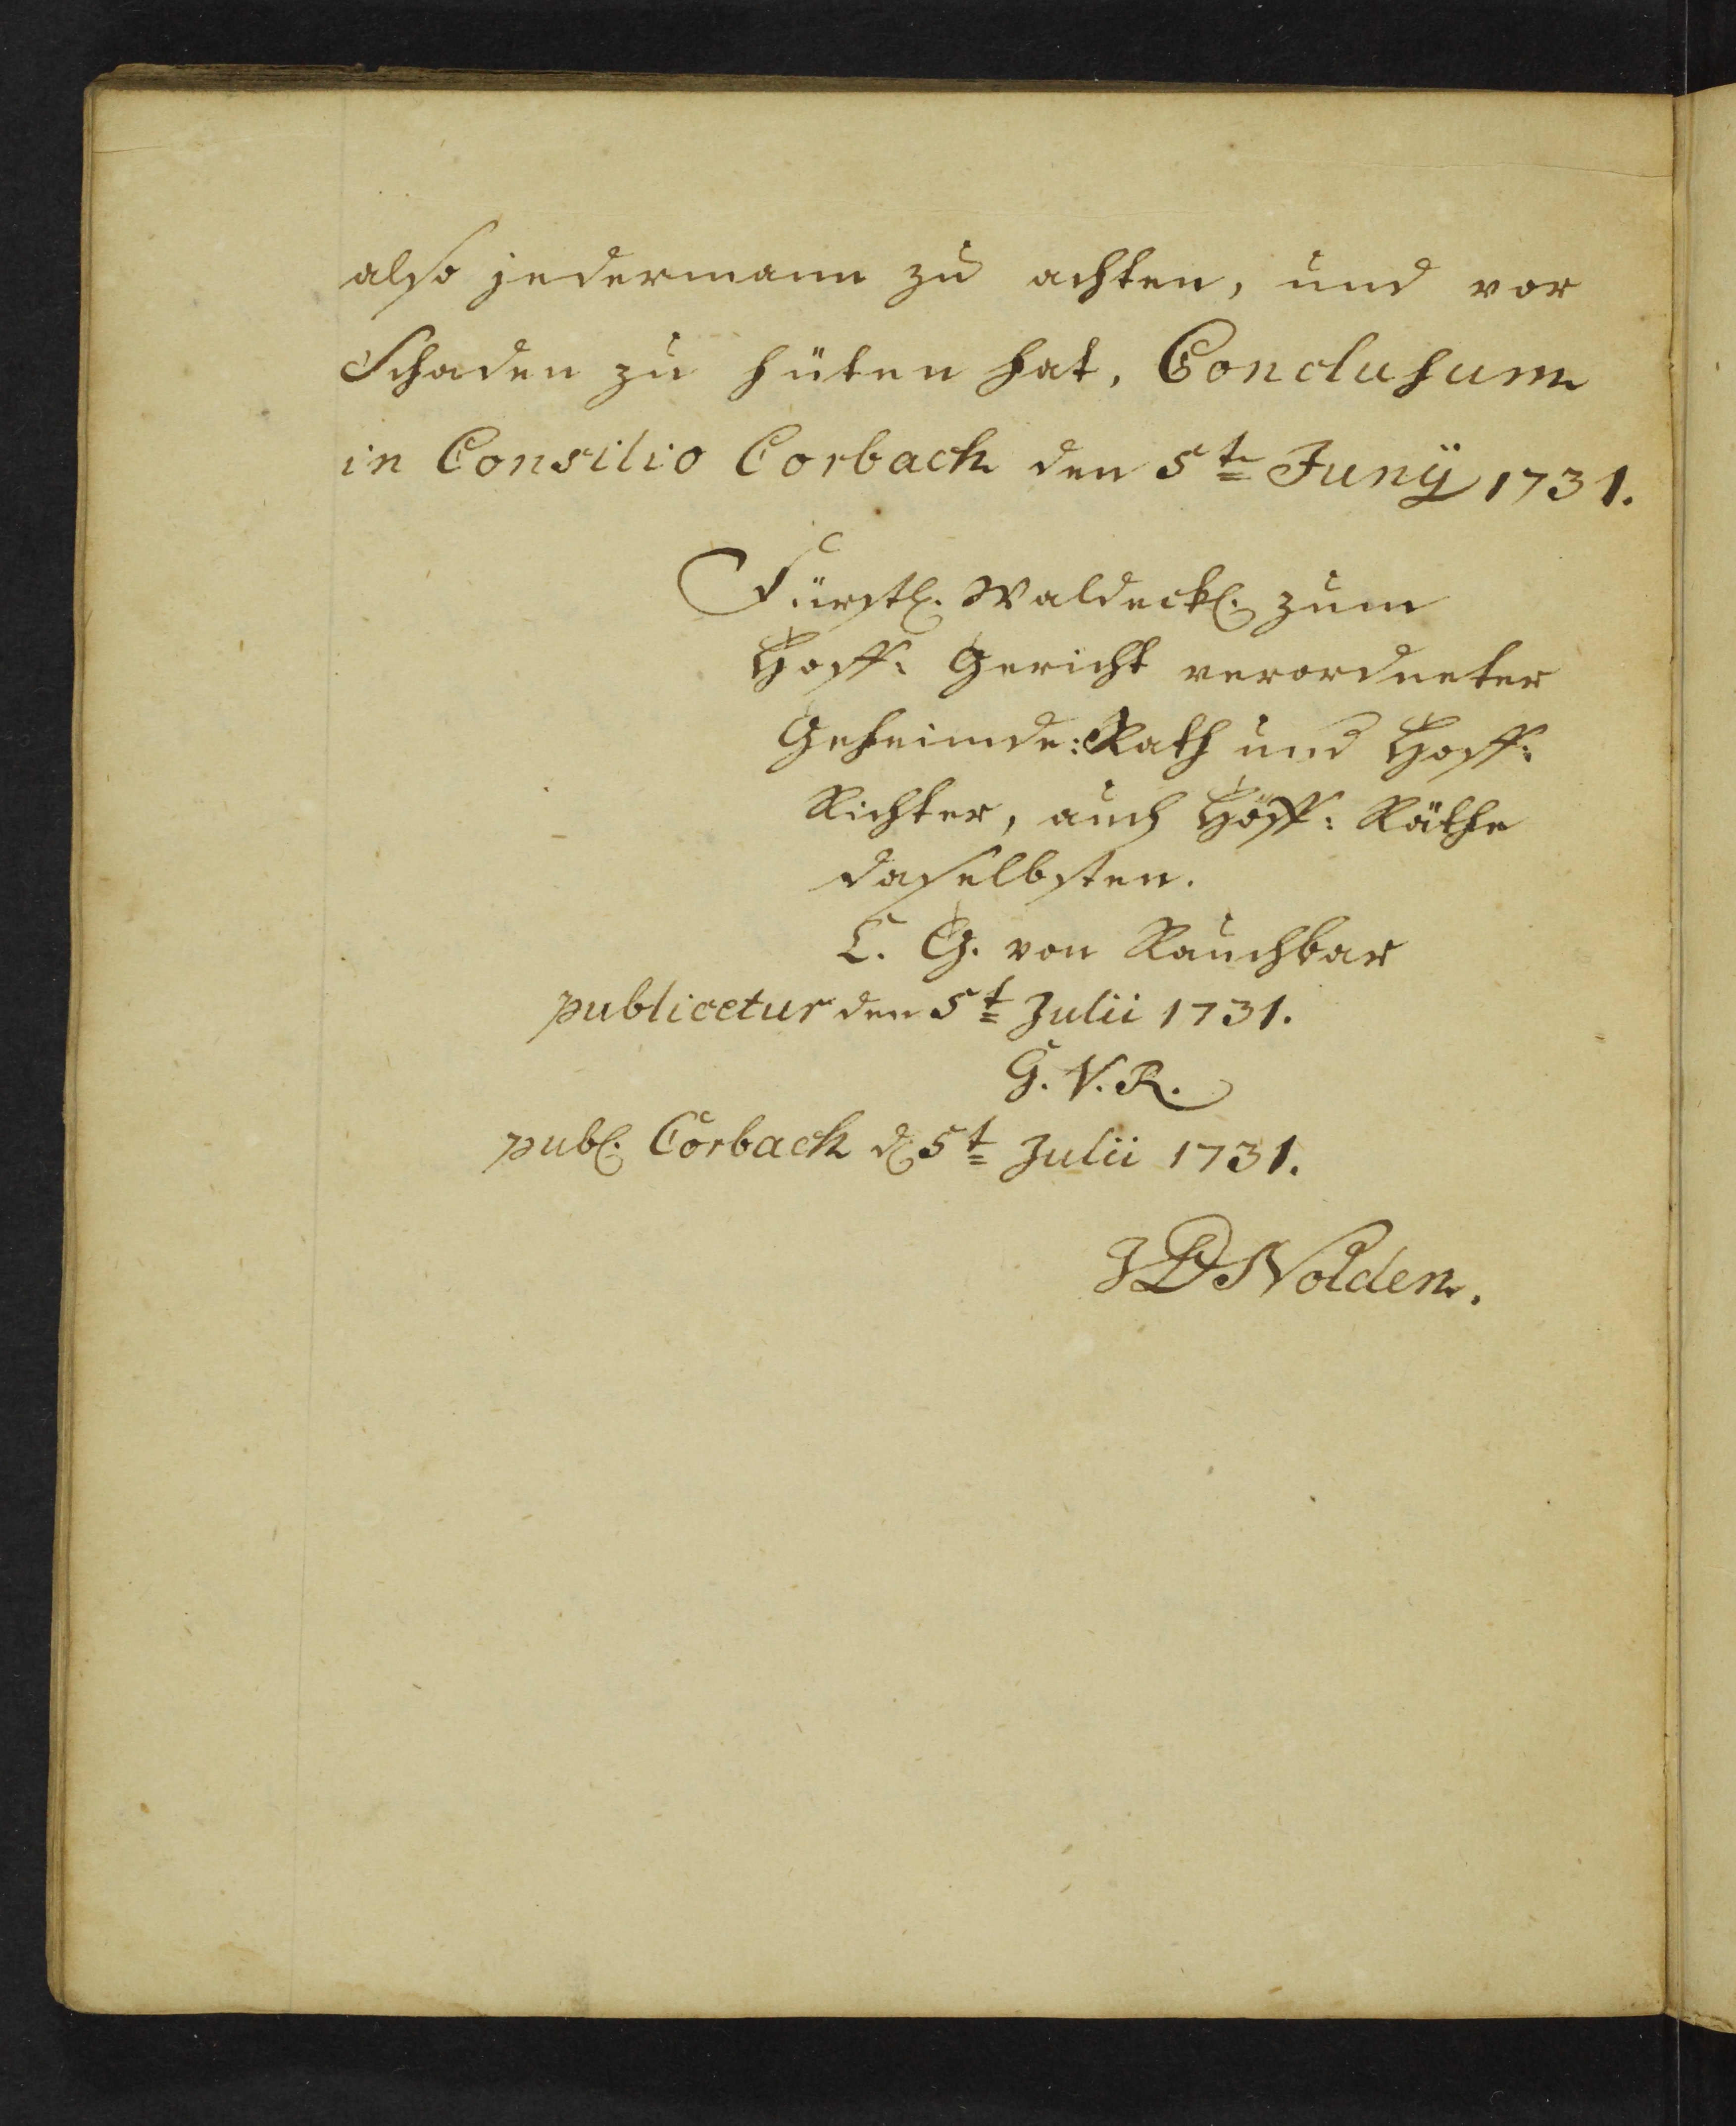 also jedermann zu achten, und vor
Schaden zu hüten hat. Conclusum
in Consilio Corbach den 5t Junÿ 1731.
Fürstl. Waldeckl. zum
Hoff: Gericht verordneter
Geheimde: Rath und Hoff:
Richter, auch Hoff: Räthe
daselbsten.
C. G. von Rauchbar
publicetur den 5t Julii 1731.
G. V. R.
publ. Corbach d. 5t Julii 1731.
JD Nolden.